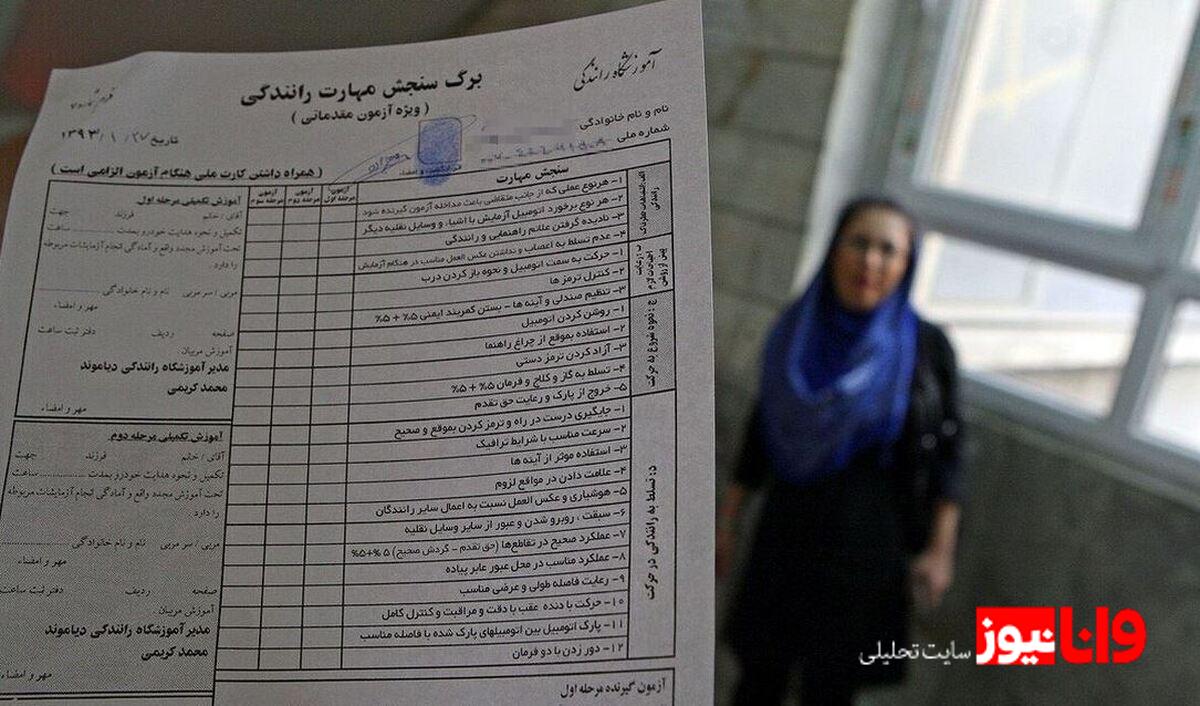 آموزشگاه رانندگی
برگ سنجش مهارت رانندگی
( ویژه آزمون مقدماتی )
تاریخ ۱۳۹۳/۱/۲۷
نام و نام خانوادگی
شماره ملی
( همراه داشتن کارت ملی هنگام آزمون الزامی است )
سنجش مهارت
آزمون مرحله اول
آزمون مرحله دوم
آزمون مرحله سوم
۱- هرنوع عملی که از جانب متقاضی باعث مداخله آزمون گیرنده شود
۲- هر نوع برخورد اتومبیل آزمایش با اشیاء و وسایل نقلیه دیگر
۳- نادیده گرفتن علائم راهنمایی و رانندگی
۴- عدم تسلط به اعصاب و نداشتن عکس العمل مناسب در هنگام آزمایش
۱- حرکت به سمت اتومبیل و نحوه باز کردن درب
۲- کنترل ترمز ها
۳- تنظیم صندلی و آینه ها - بستن کمربند ایمنی ۵% + ۵%
ج : نحوه شروع به حرکت
۱- روشن کردن اتومبیل
۲- استفاده بموقع از چراغ راهنما
۳- آزاد کردن ترمز دستی
۴- تسلط به گاز و کلاج و فرمان ۵% + ۵%
۵- خروج از پارک و رعایت حق تقدم
د : تسلط به رانندگی در حرکت
۱- جایگیری درست در راه و ترمز کردن بموقع و صحیح
۲- سرعت مناسب با شرایط ترافیک
۳- استفاده موثر از آینه ها
۴- علامت دادن در مواقع لزوم
۵- هوشیاری و عکس العمل نسبت به اعمال سایر رانندگان
۶- سبقت ، روبرو شدن و عبور از سایر وسایل نقلیه
۷- عملکرد صحیح در تقاطع‌ها (حق تقدم - گردش صحیح) ۵%+۵%
۸- عملکرد مناسب در محل عبور عابر پیاده
۹- رعایت فاصله طولی و عرضی مناسب
۱۰- حرکت با دنده عقب با دقت و مراقبت و کنترل کامل
۱۱- پارک اتومبیل بین اتومبیلهای پارک شده با فاصله مناسب
۱۲- دور زدن با دو فرمان
آزمون گیرنده مرحله اول
آموزش تکمیلی مرحله اول
آقای / خانم فرزند جهت
تکمیل و نحوه هدایت خودرو بمدت ساعت
تحت آموزش مجدد واقع و آمادگی انجام آزمایشات مربوطه
را دارد .
مربی / سر مربی نام و نام خانوادگی
مهر و امضاء
صفحه ردیف دفتر ثبت ساعت
آموزش مربیان
مدیر آموزشگاه رانندگی دیاموند
محمد کریمی
مهر و امضاء
آموزش تکمیلی مرحله دوم
آقای / خانم فرزند جهت
تکمیل و نحوه هدایت خودرو بمدت ساعت
تحت آموزش مجدد واقع و آمادگی انجام آزمایشات مربوطه
را دارد .
مربی / سر مربی نام و نام خانوادگی
مهر و امضاء
صفحه ردیف دفتر ثبت ساعت
آموزش مربیان
مدیر آموزشگاه رانندگی دیاموند
محمد کریمی
مهر و امضاء
وانا نیوز سایت تحلیلی